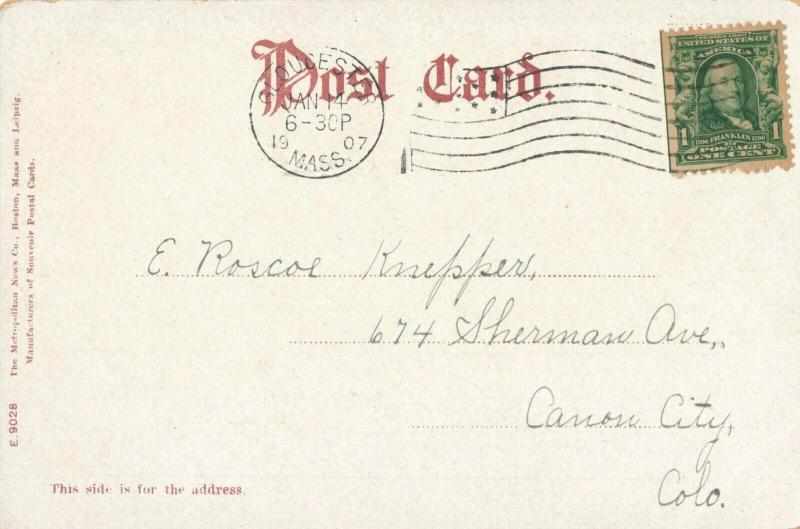 Post Card.
GLOUCESTER
JAN 14
6-30P
19 07
MASS.
SERIES 1902
UNITED STATES OF
AMERICA
1706 FRANKLIN 1790
1 POSTAGE 1
ONE CENT
E. Roscoe Knepper,
674 Sherman Ave,
Canon City,
Colo.
This side is for the address.
E. 9028 The Metropolitan News Co., Boston, Mass and Leipzig.
Manufacturers of Souvenir Postal Cards.